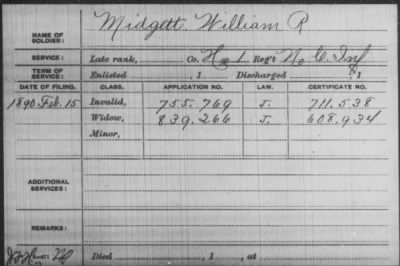 Midgett, William R
NAME OF SOLDIER:
SERVICE: Late rank, Co. H 1 Reg't No. C. Inf
TERM OF SERVICE: Enlisted , 1 Discharged , 1
DATE OF FILING. CLASS. APPLICATION NO. LAW. CERTIFICATE NO.
1890 Feb. 15 Invalid, 755.769 J. 711.538
Widow, 839.266 J. 608.934
Minor,
ADDITIONAL SERVICES:
REMARKS:
Died , 1 , at